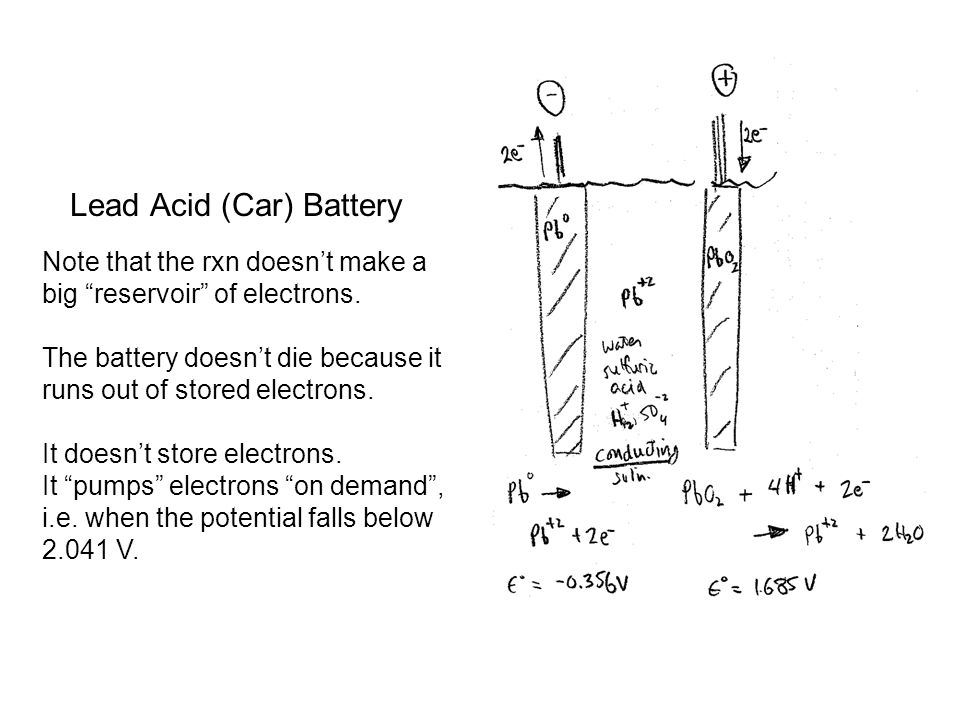 Lead Acid (Car) Battery
Note that the rxn doesn’t make a
big “reservoir” of electrons.
The battery doesn’t die because it
runs out of stored electrons.
It doesn’t store electrons.
It “pumps” electrons “on demand”,
i.e. when the potential falls below
2.041 V.
-
+
2e⁻
2e⁻
Pb⁰
PbO₂
Pb⁺²
water
sulfuric
acid
H₂⁺, SO₄⁻²
conducting
soln.
Pb⁰ →
Pb⁺² + 2e⁻
ε° = -0.356V
PbO₂ + 4H⁺ + 2e⁻
→ Pb⁺² + 2H₂O
ε° = 1.685 V